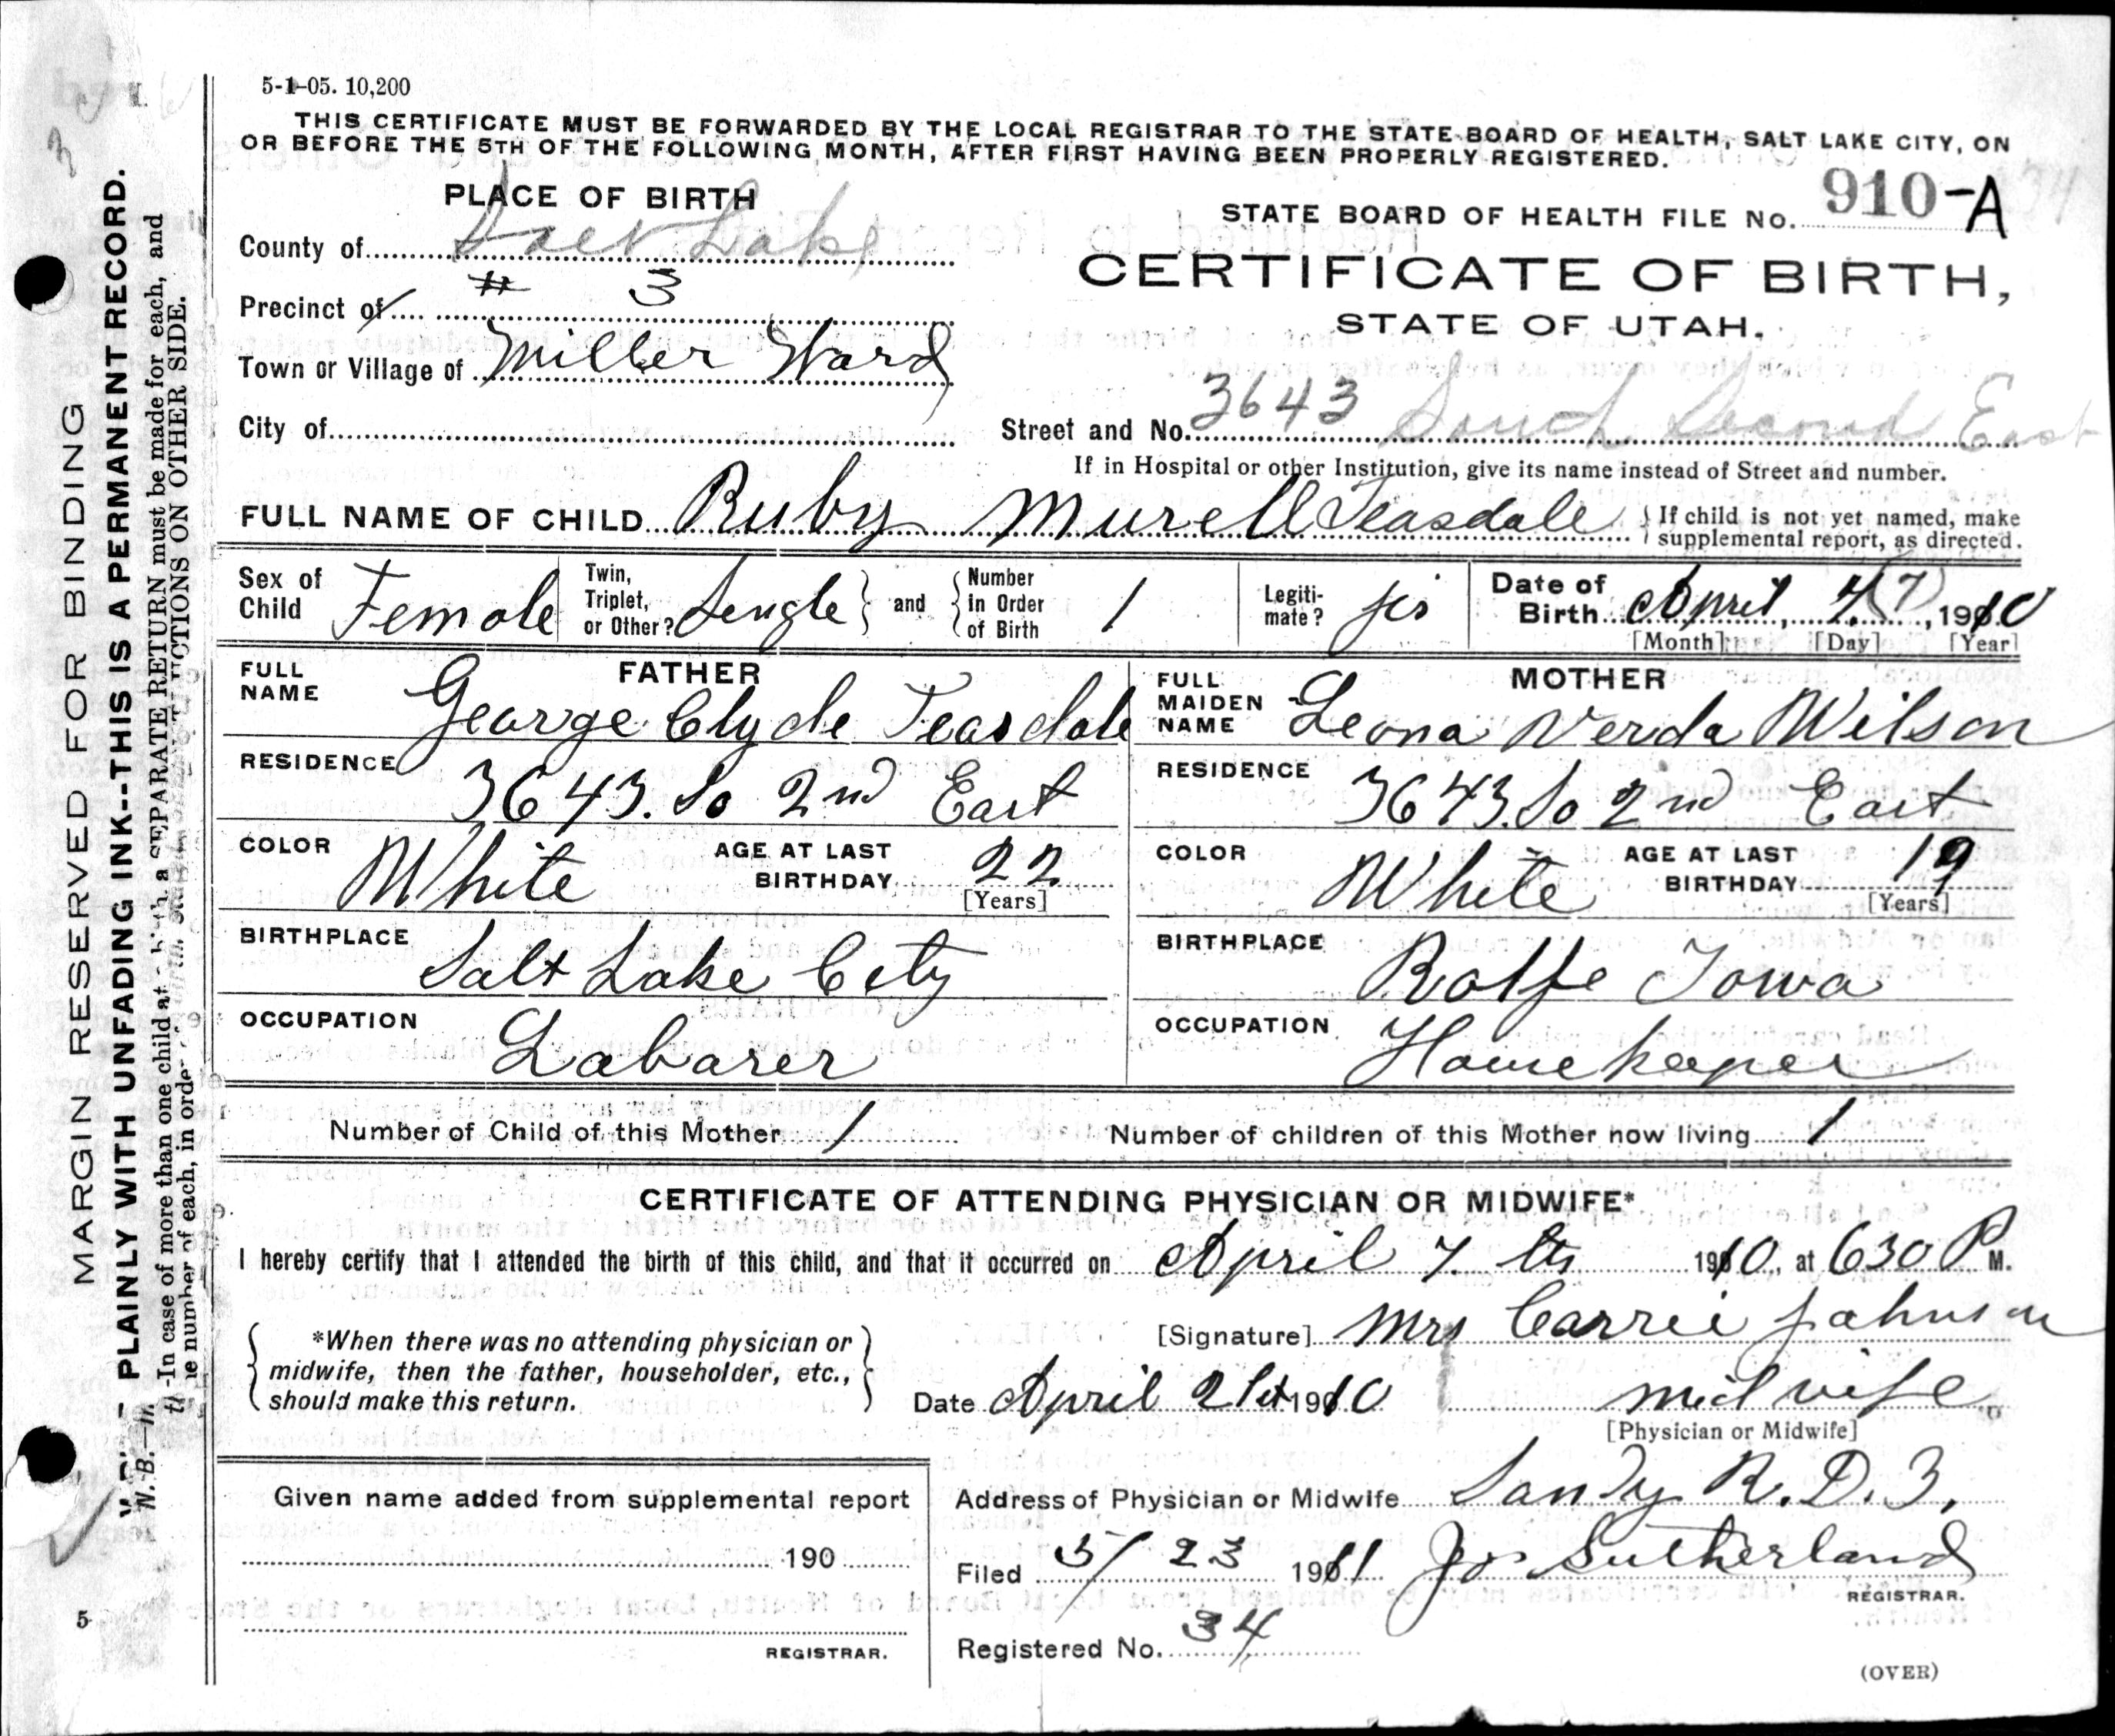 5-1-05. 10,200
THIS CERTIFICATE MUST BE FORWARDED BY THE LOCAL REGISTRAR TO THE STATE BOARD OF HEALTH, SALT LAKE CITY, ON
OR BEFORE THE 5TH OF THE FOLLOWING MONTH, AFTER FIRST HAVING BEEN PROPERLY REGISTERED.
PLACE OF BIRTH
STATE BOARD OF HEALTH FILE No. 910-A
County of Salt Lake
CERTIFICATE OF BIRTH,
Precinct of # 3
STATE OF UTAH.
Town or Village of Miller Ward
City of
Street and No. 3643 South Second East
If in Hospital or other Institution, give its name instead of Street and number.
FULL NAME OF CHILD Ruby Murell Teasdale { If child is not yet named, make
supplemental report, as directed.
Sex of Child Female
Twin, Triplet, or Other? Single } and { Number in Order of Birth 1
Legiti-mate? yis
Date of Birth April, 4 (7), 1910
[Month] [Day] [Year]
FATHER
FULL NAME George Clyde Teasdale
RESIDENCE 3643. So 2nd East
COLOR White AGE AT LAST BIRTHDAY 22 [Years]
BIRTHPLACE Salt Lake City
OCCUPATION Labarer
MOTHER
FULL MAIDEN NAME Leona Verda Wilson
RESIDENCE 3643. So 2nd East
COLOR White AGE AT LAST BIRTHDAY 19 [Years]
BIRTHPLACE Rolfe Iowa
OCCUPATION House keeper
Number of Child of this Mother 1 Number of children of this Mother now living 1
CERTIFICATE OF ATTENDING PHYSICIAN OR MIDWIFE*
I hereby certify that I attended the birth of this child, and that it occurred on April 7. th 1910, at 630 P M.
*When there was no attending physician or
midwife, then the father, householder, etc.,
should make this return.
[Signature] Mrs Carrie Johnson
Date April 21st 1910 mid wife
[Physician or Midwife]
Given name added from supplemental report
190
REGISTRAR.
Address of Physician or Midwife Sandy R.D.3.
Filed 5/23 1911 Jos Sutherland
REGISTRAR.
Registered No. 34
(OVER)
MARGIN RESERVED FOR BINDING
PLAINLY WITH UNFADING INK--THIS IS A PERMANENT RECORD.
N. B.—In case of more than one child at a birth, a SEPARATE RETURN must be made for each, and
number of each, in order
INSTRUCTIONS ON OTHER SIDE.
5